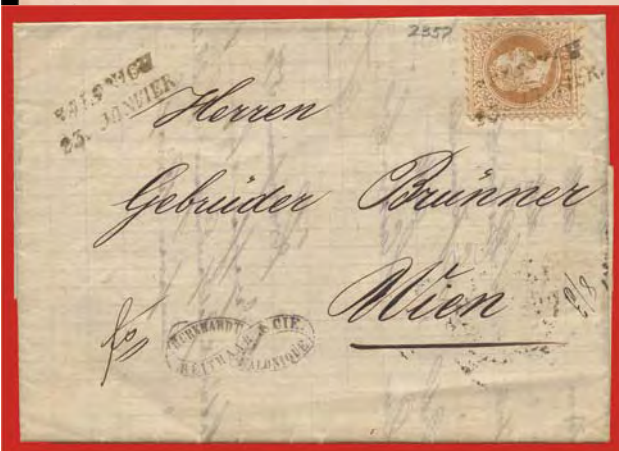 2357
SALONICH
23. JANVIER
Herren
Gebrüder Brünner
Wien
BERNHARDT & CIE.
SALONIQUE